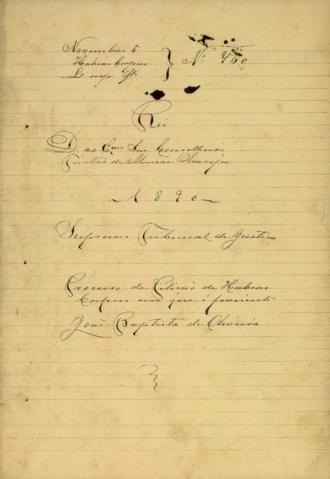 Novembro 5
Habeas Corpus
Nº 760
Rio
D. ao Exmo Snr Conselheiro
de Araujo
1890
Supremo Tribunal de Justiça
Processo de Petição de Habeas
Corpus em que é paciente
João Baptista de Oliveira